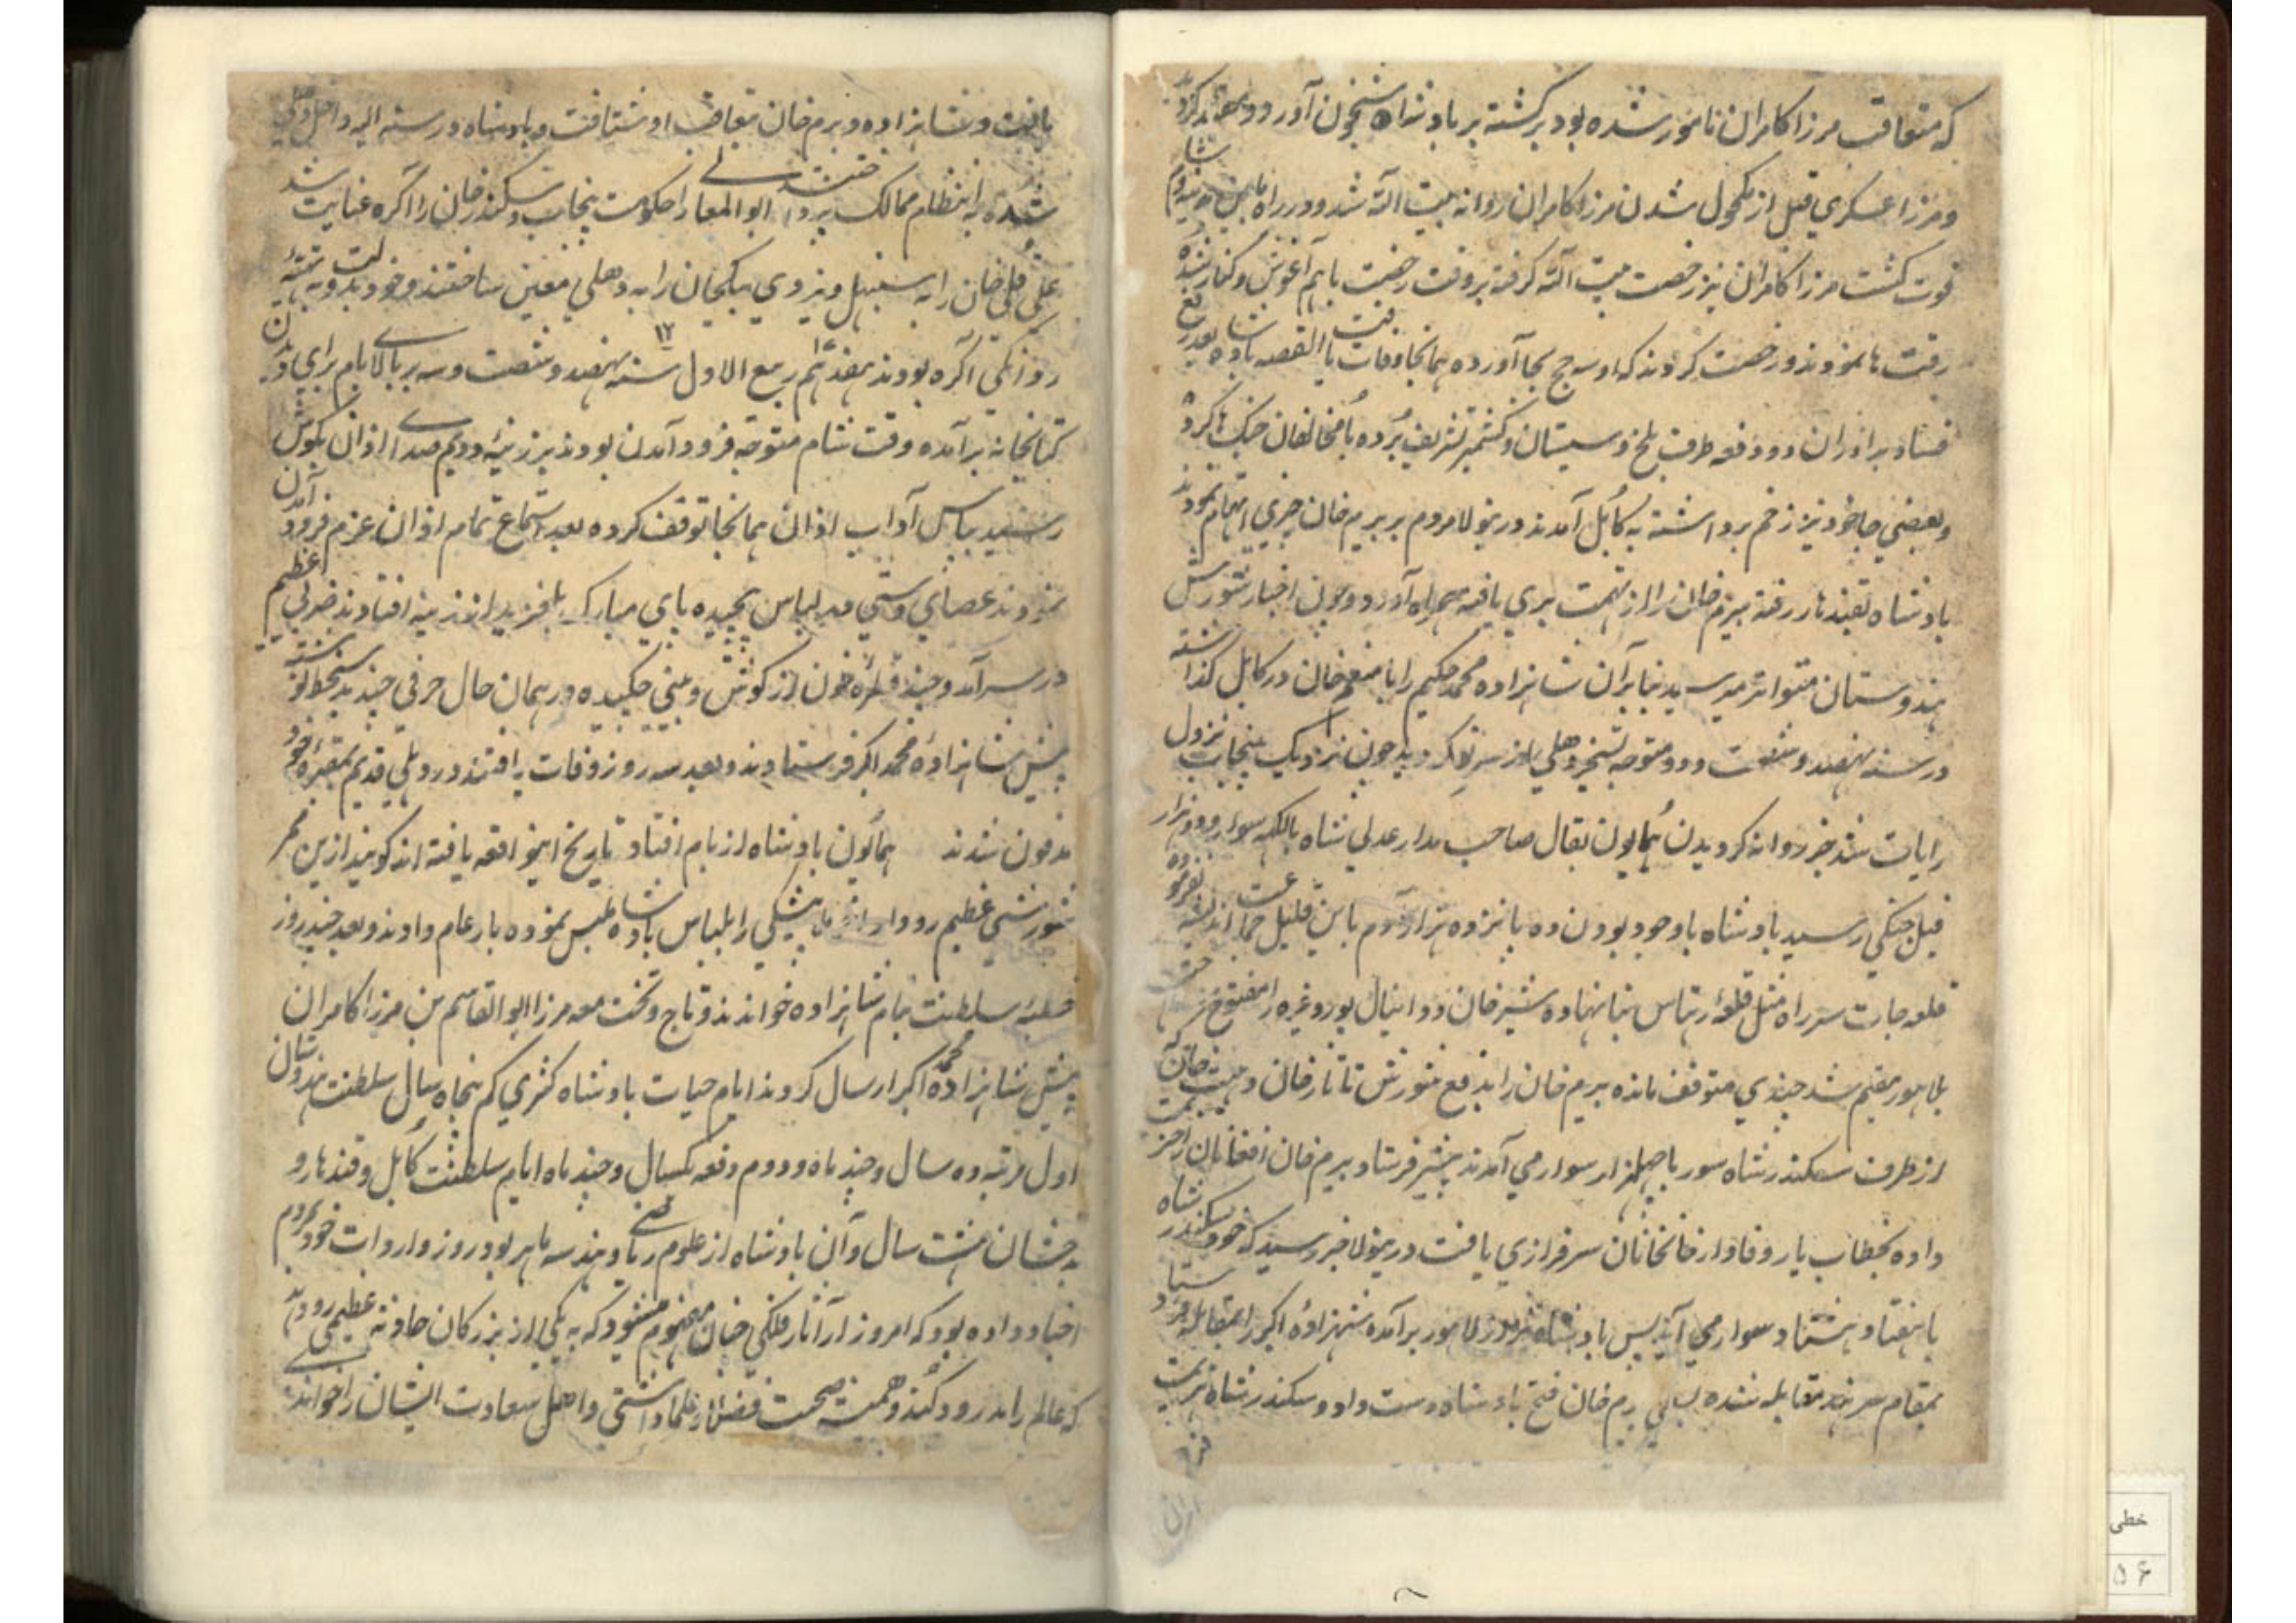 که متعاقب مرزا کامران نامور شده بود برکشته بر بادشاه شبخون آورد و
و مرزا عسکري قبل از مکحول شدن مرزا کامران روانه بیت الله شد و در راه
فوت کشت مرزا کامران نیز رخصت بیت الله کرفته بر وقت رخصت باهم آغوش و کنار شده
رقت ها نمودند و رخصت کردند که او سه حج بجا آورده همانجا وفات یافت القصه بادشاه بعد رفع
فساد برادران دو دفعه طرف بلخ و سیستان و کشمیر تشریف برده با مخالفان جنک ها کرد
و بعضي جا خود نیز زخم برداشته به کابل آمدند درینولا مردم بر بیرم خان چیزي اتهام نمودند
بادشاه بقندهار رفته بیرم خان را از تهمت بري یافته همراه آورد و چون اخبار شورش
هندوستان متواتر میرسید بنابرآن شاهزاده محمد حکیم را با منعم خان در کابل کذاشته
در سنه نهصد و شصت و دو متوجه تسخیر دهلي از سر نو کردید چون نزدیک پنجاب نزول
رایات شد خبر روانه کردیدن همایون بقال صاحب مدار عدلي شاه با لکهه سوار و دو هزار
فیل جنکي رسید بادشاه باوجود بودن ده پانزده هزار آدم باین قلیل جماعت اندیشه نفرموده
قلعه جات سر راه مثل قلعه رهتاس بنا نهاده شیر خان و دانیال پور و غیره را مفتوح
بلاهور مقیم شد چندي متوقف مانده بیرم خان را بدفع شورش تاتار خان و هیبت خان که
از طرف سکندر شاه سور با چهل هزار سوار مي آمدند پیشتر فرستاد بیرم خان افغانان را
داده بخطاب یار وفادار خانخانان سرفرازي یافت درینولا خبر رسید که خود سکندر شاه
با هفتاد هشتاد سوار مي آید پس بادشاه نیز از لاهور برآمده شهزاده اکبر را بمقابله فرستاد
بمقام سرهند مقابله شده بسعي بیرم خان فتح بادشاه دست داد و سکندر شاه هزیمت
یافت و شاهزاده و بیرم خان تعاقب او شتافت و بادشاه در سنه الیه داخل دهلي
شده به انتظام ممالک پرداختند ابو المعالے را حکومت پنجاب و سکندر خان را آکره عنایت شد
علي قلي خان را به سنبهل و تردي بیک خان را به دهلي معین ساختند و خود بدولت به تهیه
روانکي آکره بودند هفدهم ربیع الاول سنه نهصد و شصت و سه بر بالاے بام براي دیدن
کتابخانه برآمده وقت شام متوجه فرود آمدن بودند بر زینه دویم صداے اذان بکوش
رسید بپاس آداب اذان همانجا توقف کرده بعد استماع تمام اذان عزم فرود آمدن
نمودند عصاي دستي در لباس پیچیده پاي مبارک بلغزید از زینه افتادند ضربي عظیم
در سر آمد و چند قطره خون از کوش و بیني چکیده در همان حال حرفي چند بدستخط نوشته
پیش شاهزاده محمد اکبر فرستادند و بعد سه روز وفات یافتند در دهلي قدیم بمقبره خود
مدفون شدند همایون بادشاه از بام افتاد تاریخ اینواقعه یافته اند کویند ازین خبر
شورشي عظیم رو داد ملا بیکسي را بلباس بادشاه ملبس نموده بار عام دادند و بعد چند روز
خطبه سلطنت بنام شاهزاده خواندند و تاج و تخت معه مرزا ابو القاسم بن مرزا کامران
پیش شاهزاده محمد اکبر ارسال کردند ایام حیات بادشاه کسري کم پنجاه سال سلطنت هندوستان
اول مرتبه ده سال و چند ماه و دوم دفعه یکسال و چند ماه ایام سلطنت کابل و قندهار و
بدخشان هشت سال و آن بادشاه از علوم ریاضے و هندسه ماهر بود روز واردات خود بمردم
اخبار داده بود که امروز از آثار فلکي چنان مفهوم میشود که به یکي از بزرکان حادثه عظیمي رو دهد
که عالم را بدرود کند و همیشه صحبت فضلا و علما داشتي و اهل سعادت ایشان را خواندے